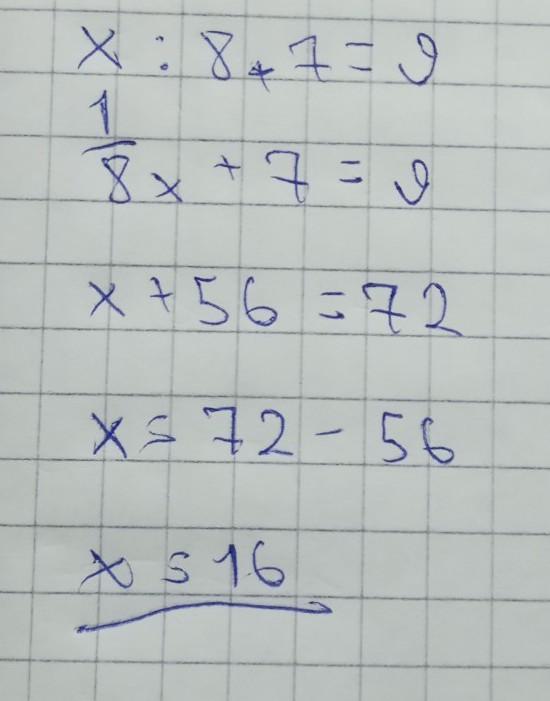 x : 8 + 7 = 9
1/8x + 7 = 9
x + 56 = 72
x = 72 - 56
x = 16